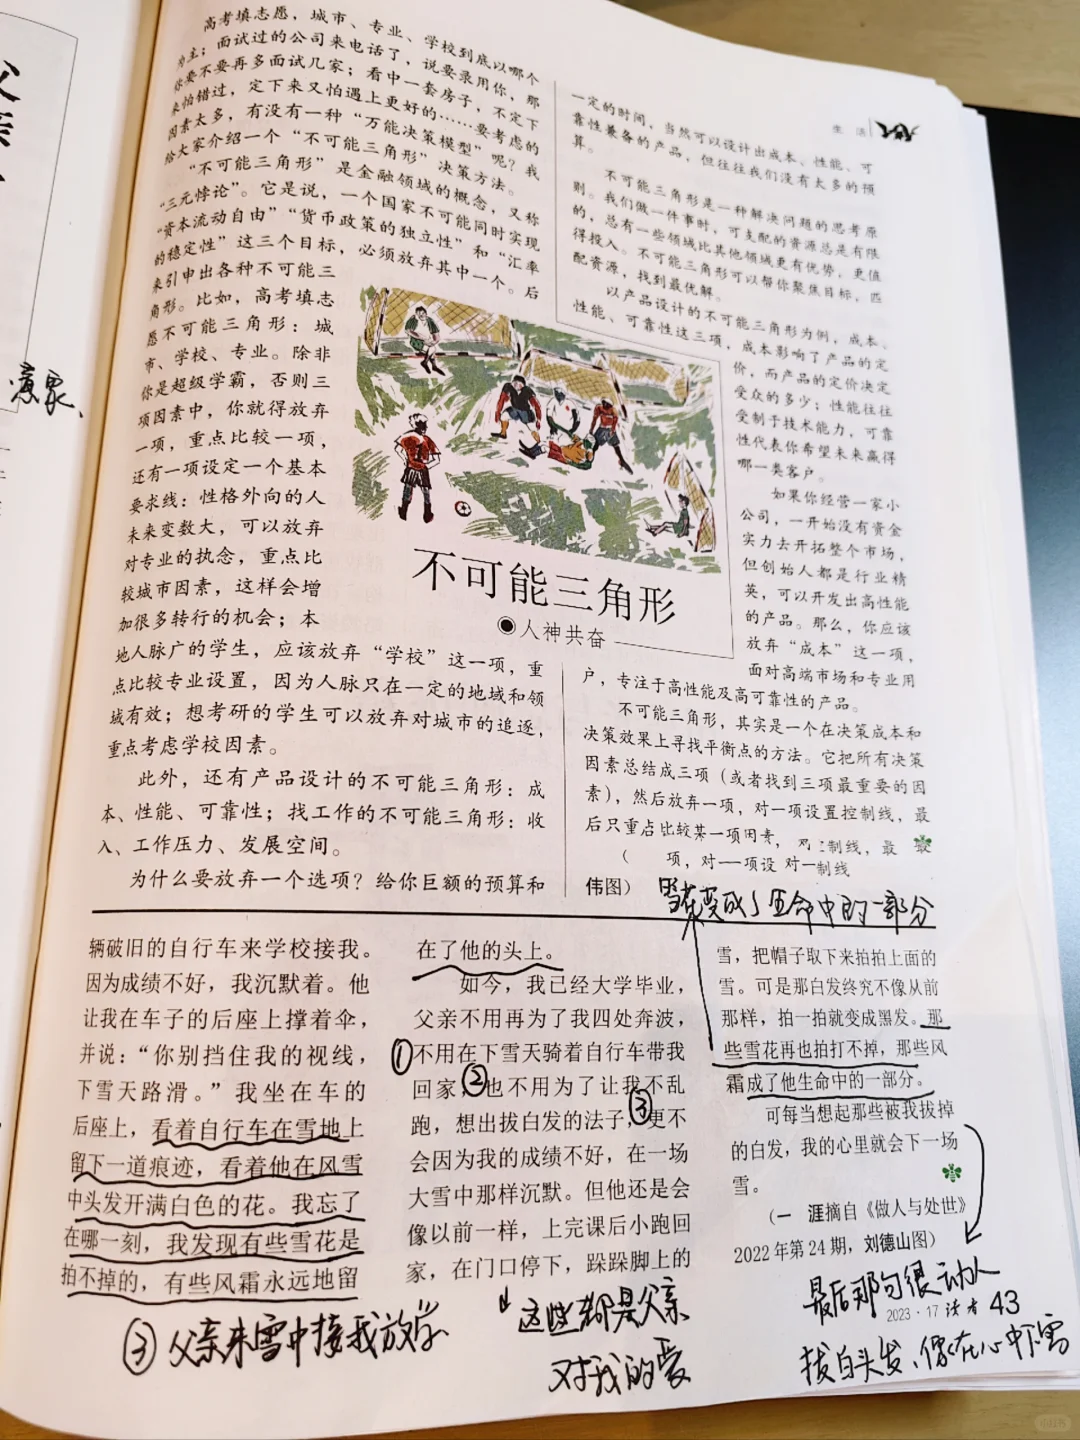 父亲
意象、
生活
高考填志愿，城市、专业、学校到底以哪个
为主；面试过的公司来电话了，说要录用你，那
你要不要再多面试几家；看中一套房子，不定下
来怕错过，定下来又怕遇上更好的……要考虑的
因素太多，有没有一种“万能决策模型”呢？我
给大家介绍一个“不可能三角形”决策方法。
“不可能三角形”是金融领域的概念，又称
“三元悖论”。它是说，一个国家不可能同时实现
“资本流动自由”“货币政策的独立性”和“汇率
的稳定性”这三个目标，必须放弃其中一个。后
来引申出各种不可能三
角形。比如，高考填志
愿不可能三角形：城
市、学校、专业。除非
你是超级学霸，否则三
项因素中，你就得放弃
一项，重点比较一项，
还有一项设定一个基本
要求线：性格外向的人
未来变数大，可以放弃
对专业的执念，重点比
较城市因素，这样会增
加很多转行的机会；本
地人脉广的学生，应该放弃“学校”这一项，重
点比较专业设置，因为人脉只在一定的地域和领
域有效；想考研的学生可以放弃对城市的追逐，
重点考虑学校因素。
此外，还有产品设计的不可能三角形：成
本、性能、可靠性；找工作的不可能三角形：收
入、工作压力、发展空间。
为什么要放弃一个选项？给你巨额的预算和
不可能三角形
●人神共奋
一定的时间，当然可以设计出成本、性能、可
靠性兼备的产品，但往往我们没有太多的预
算。
不可能三角形是一种解决问题的思考原
则。我们做一件事时，可支配的资源总是有限
的，总有一些领域比其他领域更有优势，更值
得投入。不可能三角形可以帮你聚焦目标，匹
配资源，找到最优解。
以产品设计的不可能三角形为例，成本、
性能、可靠性这三项，成本影响了产品的定
价，而产品的定价决定
受众的多少；性能往往
受制于技术能力，可靠
性代表你希望未来赢得
哪一类客户。
如果你经营一家小
公司，一开始没有资金
实力去开拓整个市场，
但创始人都是行业精
英，可以开发出高性能
的产品。那么，你应该
放弃“成本”这一项，
面对高端市场和专业用
户，专注于高性能及高可靠性的产品。
不可能三角形，其实是一个在决策成本和
决策效果上寻找平衡点的方法。它把所有决策
因素总结成三项（或者找到三项最重要的因
素），然后放弃一项，对一项设置控制线，最
后只重点比较某一项因素，对 制线，最
（ 项，对一项设 对一制线
伟图）
雪花变成了生命中的一部分
辆破旧的自行车来学校接我。
因为成绩不好，我沉默着。他
让我在车子的后座上撑着伞，
并说：“你别挡住我的视线，
下雪天路滑。”我坐在车的
后座上，看着自行车在雪地上
留下一道痕迹，看着他在风雪
中头发开满白色的花。我忘了
在哪一刻，我发现有些雪花是
拍不掉的，有些风霜永远地留
③父亲来雪中接我放学
在了他的头上。
如今，我已经大学毕业，
父亲不用再为了我四处奔波，
①不用在下雪天骑着自行车带我
回家，②也不用为了让我不乱
跑，想出拔白发的法子，③更不
会因为我的成绩不好，在一场
大雪中那样沉默。但他还是会
像以前一样，上完课后小跑回
家，在门口停下，跺跺脚上的
这些都是父亲
对我的爱
雪，把帽子取下来拍拍上面的
雪。可是那白发终究不像从前
那样，拍一拍就变成黑发。那
些雪花再也拍打不掉，那些风
霜成了他生命中的一部分。
可每当想起那些被我拔掉
的白发，我的心里就会下一场
雪。
（一 涯摘自《做人与处世》
2022年第24期，刘德山图）
最后那句很动人
2023·17 读者 43
拔白头发、像在心中下雪
小红书